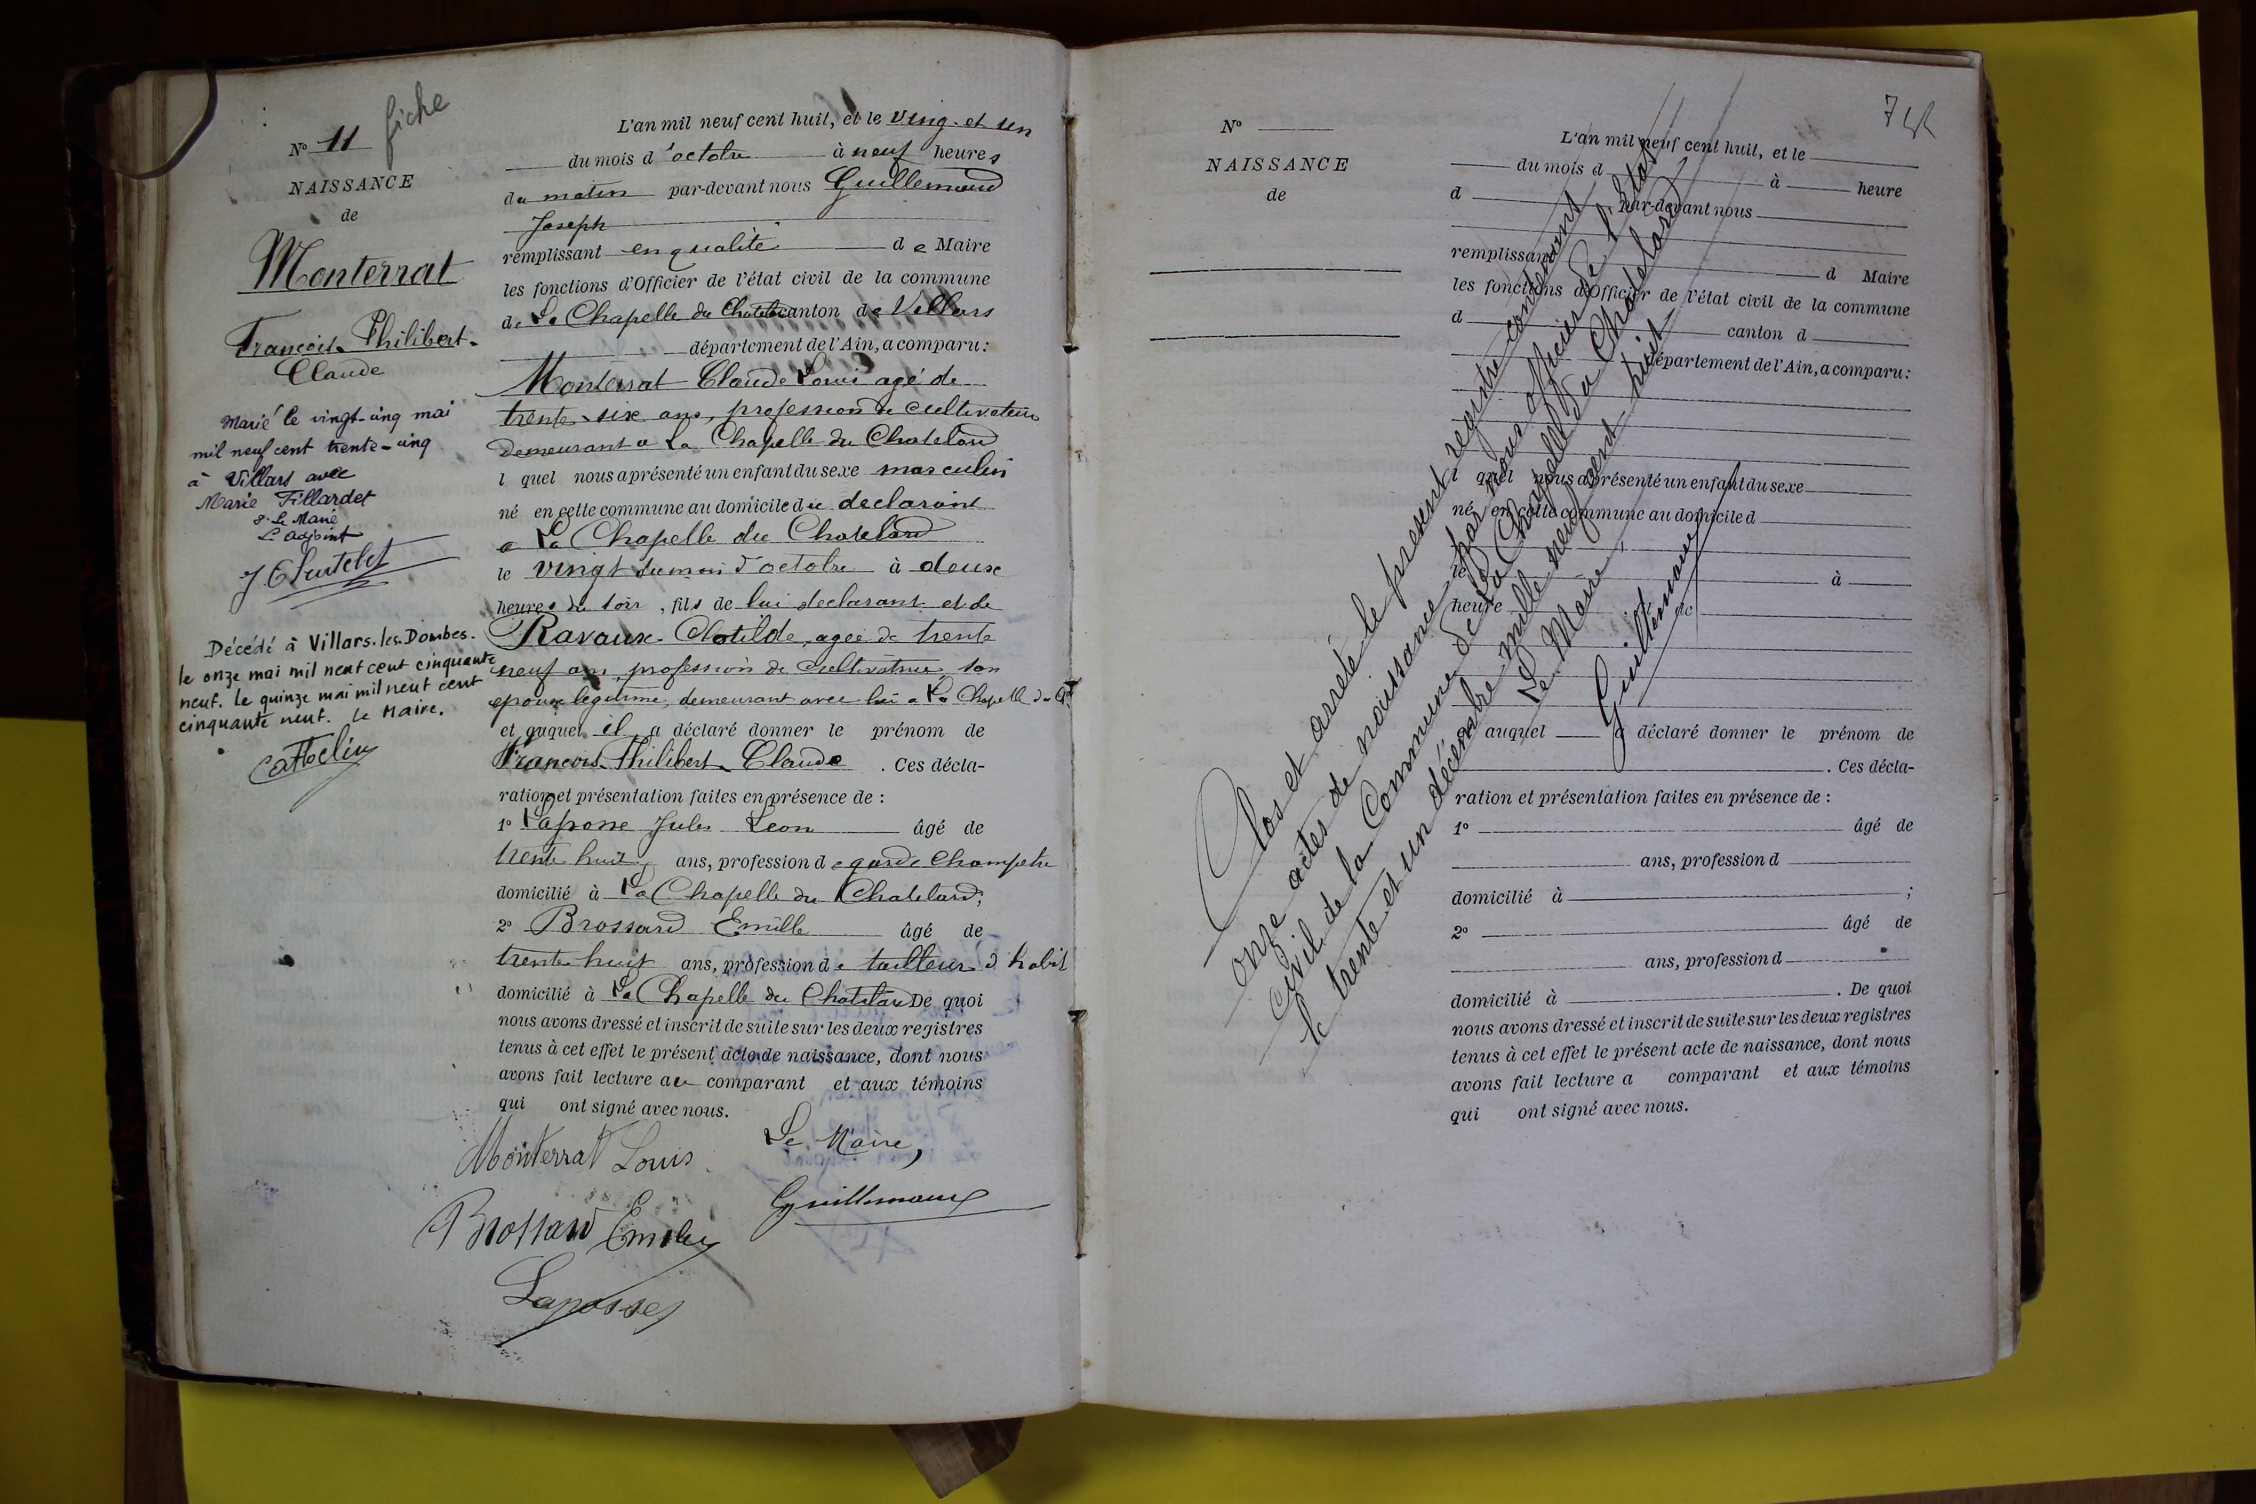 fiche
N° 11
NAISSANCE
de
Monterrat
François Philibert
Claude
Marié le vingt-cinq mai
mil neuf cent trente-cinq
à Villars avec
Marie Fillardet
P. Le Maire
L'adjoint
Décédé à Villars-les-Dombes
le onze mai mil neuf cent cinquante
neuf. Le quinze mai mil neuf cent
cinquante neuf. Le Maire.
L'an mil neuf cent huit, et le ving et un
du mois d'octobre à neuf heures
du matin par-devant nous Guillemaud
Joseph
remplissant en qualité de Maire
les fonctions d'Officier de l'état civil de la commune
de La Chapelle du Chatelard canton de Villars
département de l'Ain, a comparu :
Monterrat Claude Louis agé de
trente-six ans, profession de cultivateur
demeurant a La Chapelle du Chatelard
l quel nous a présenté un enfant du sexe masculin
né en cette commune au domicile du declarant
a La Chapelle du Chatelard
le vingt du mois d'octobre à deux
heures du soir, fils de lui declarant et de
Ravaux Clotilde, agée de trente
neuf ans, profession de cultivatrice, son
epouse legitime, demeurant avec lui a La Chapelle du Ch
et auquel il a déclaré donner le prénom de
François Philibert Claude . Ces décla-
ration et présentation faites en présence de :
1° Laposse Jules Leon âgé de
trente huit ans, profession de garde champetre
domicilié à La Chapelle du Chatelard;
2° Brossard Emille âgé de
trente huit ans, profession de tailleur d'habit
domicilié à La Chapelle du Chatelard De quoi
nous avons dressé et inscrit de suite sur les deux registres
tenus à cet effet le présent acte de naissance, dont nous
avons fait lecture au comparant et aux témoins
qui ont signé avec nous.
Monterrat Louis
Le Maire,
Brossard Emile
Guillemaud
Laposse
N°
NAISSANCE
de
L'an mil neuf cent huit, et le
du mois d à heure
d par-devant nous
remplissant d Maire
les fonctions d'Officier de l'état civil de la commune
d canton d
département de l'Ain, a comparu :
l quel nous a présenté un enfant du sexe
né en cette commune au domicile d
le à
heure de
auquel a déclaré donner le prénom de
. Ces décla-
ration et présentation faites en présence de :
1° âgé de
ans, profession d
domicilié à ;
2° âgé de
ans, profession d
domicilié à . De quoi
nous avons dressé et inscrit de suite sur les deux registres
tenus à cet effet le présent acte de naissance, dont nous
avons fait lecture a comparant et aux témoins
qui ont signé avec nous.
Clos et arrêté le present registre contenant
onze actes de naissance par nous officier de l'Etat
civil de la Commune de La Chapelle du Chatelard
le trente et un décembre mille neuf cent huit
Le Maire,
Guillemaud